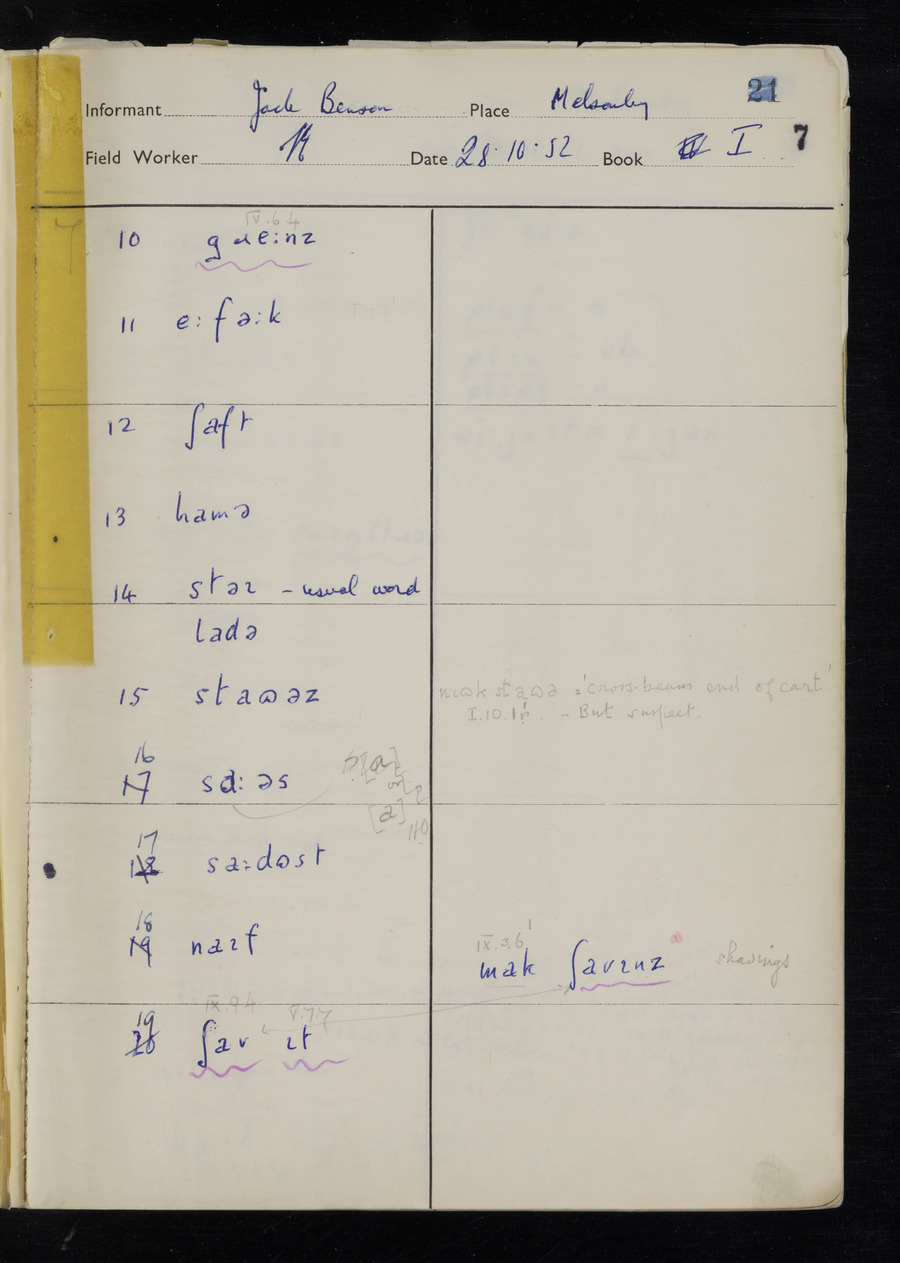 21
Informant Jack Benson Place Melsonby
Field Worker Date 28.10.52 Book I 7
IV.6.4
10 gɹeːnz
11 eː fəːk
12 ʃaft
13 hamə
14 staɪ – usual word
ladə
15 staʊəz nɪʊk staʊə = 'cross-beam end of cart'
I.10. – But suspect.
16
17 saːəs [a]
or
[a]
17
18 saːdʊst
18
19 naɪf
IX.3.6
mak ʃavɪnz shavings
IX.9.4 V.7.7
19
20 ʃav ɪt